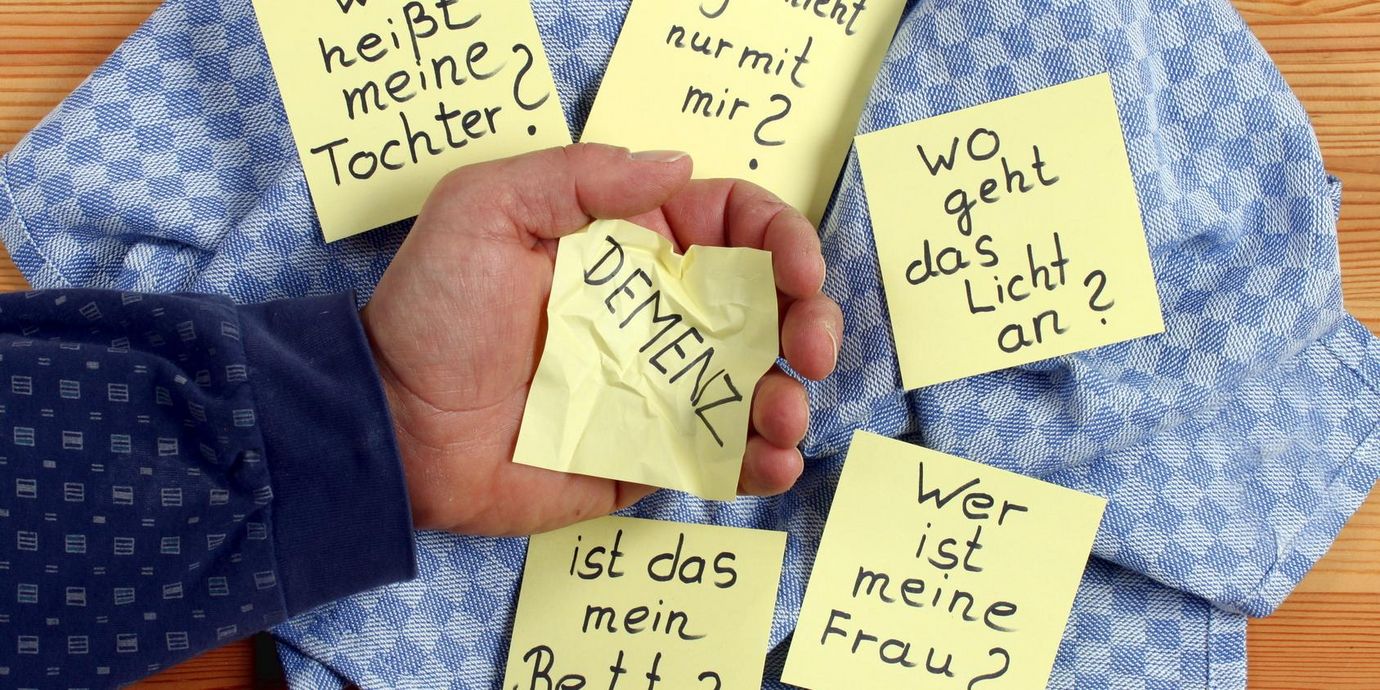 heißt
meine
Tochter?
nur mit
mir?
Wo
geht
das
Licht
an?
DEMENZ
ist das
mein
Bett?
Wer
ist
meine
Frau?